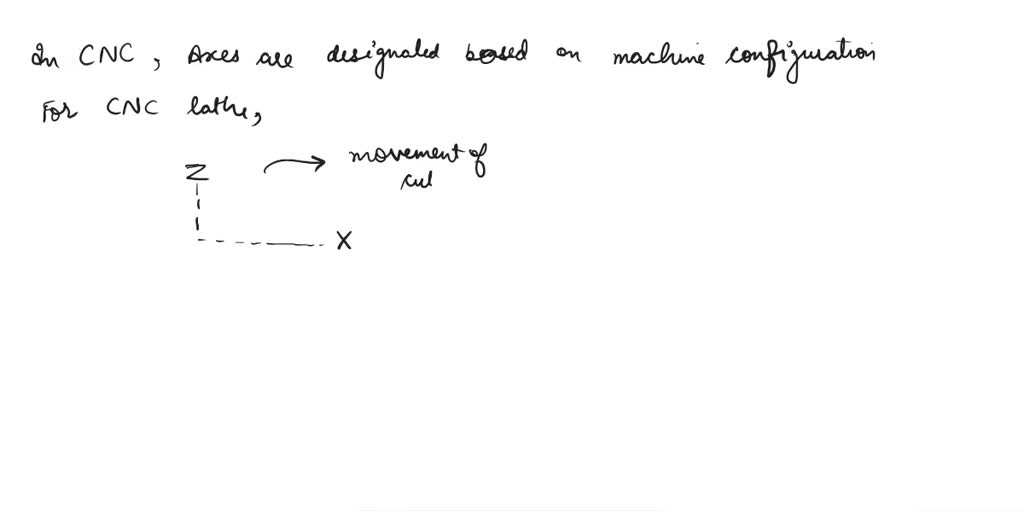 In CNC, Axes are designated based on machine configuration
For CNC lathe,
Z → movement of
cut
X